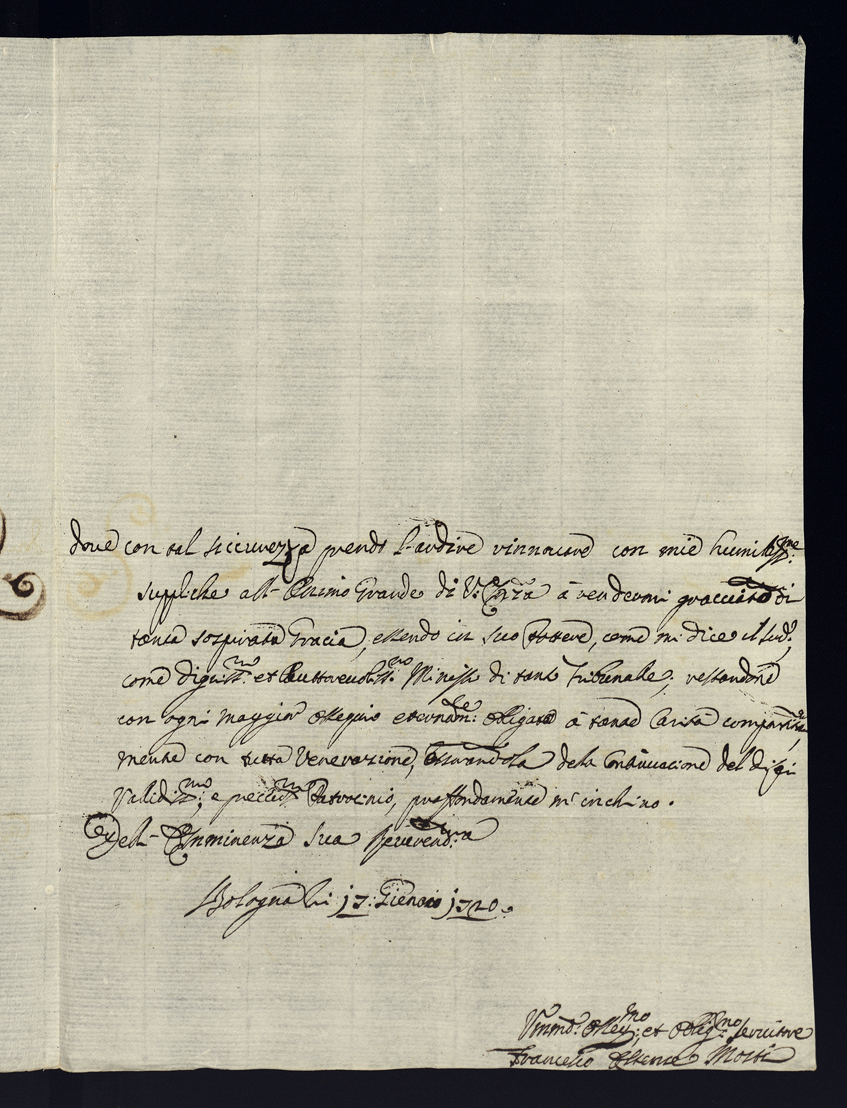 dove con tal siccurezza prendo l'ardire rinnovare con mie humiliss.me
suppliche all' Animo Grande di V: Em.za à rendermi gracciato di
tanta sospirata Gracia, essendo in suo Potere, come mi dice il sud.o
come digniss.mo: et Auttorevoliss.mo Ministro di tanto Tribunale; restandone
con ogni maggior Ossequio eternam.te: Obligato à tanta Carità
mente con tutta Venerazione, dela Continuacione del di
Validiss.mo; e Patrocinio, proffondamente m'inchino.
Dell' Emminenza Sua Reverend.ma
Bologna li 17: Gienaio 1720.
Umind. Osseq.mo; et Oblig.mo Servitore
Francesco Estense Mosti